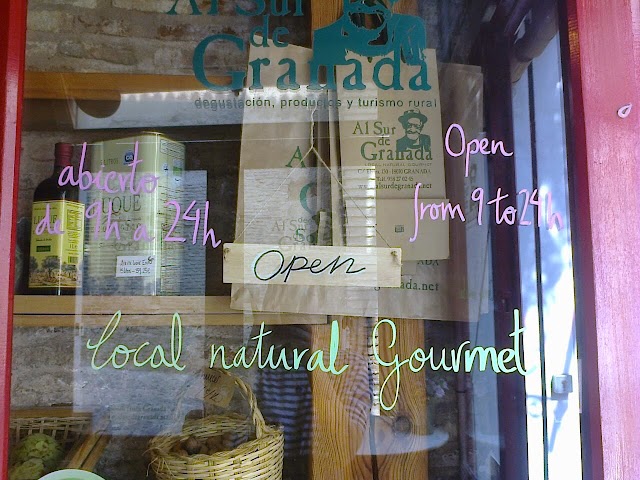 Al Sur
de
Granada
degustación, productos y turismo rural
Al Sur
de
Granada
18010 GRANADA
alsurdegranada.net
abierto
de 9h a 24h
Open
from 9 to 24h
Open
Local natural Gourmet